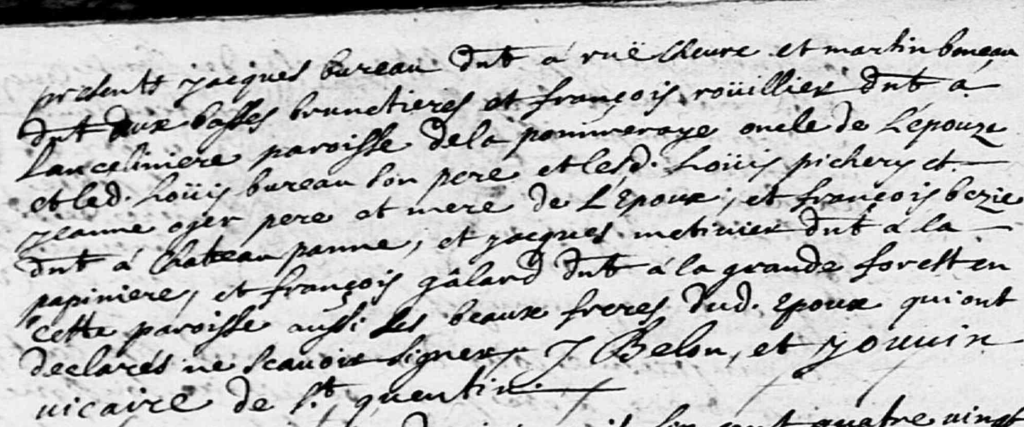 presents jacques bureau dnt á ruë Cheure et martin boneau
dnt aux basses brunetieres et françois roüillier dnt a
Lanceliniere paroisse dela pommeraye oncle de Lépouze
et led. Loüis bureau son pere et lesd. Loüis pichery et
jeanne oger pere et mere de L'Epoux, et françois bezie
dnt á chateau panne, et jacques metivier dnt á la
papiniere, et françois gâlard dnt á la grande forest en
cette paroisse aussi les beaux freres dud. Epoux qui ont
declarés ne scavoir signer J Belon, et jouuin
vicaire de St. quentin.
quatre vingt